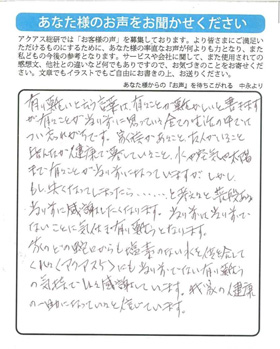 あなた様のお声をお聞かせください
アクアス総研では「お客様の声」を募集しております。より皆さまにご満足い
ただけるものにするために、あなた様の率直なお声が何よりも力となり、また
私どもの今後の参考となります。サービスや会社に関して、また使用されての
感想文、他社との違いなど何でもありますので、お気づきのことをお寄せくだ
さい。文章でもイラストでもご自由にお書きの上、お送りください。
あなた様からの『お声』を待ちこがれる 中永より
有り難いという言葉は、有ることが難かしいと書きます
が、有ることが当り前に思っている今の生活の中でとい
つい忘れがちです。家族があること、友人がいること
皆んなが健康で暮していること、水や空気や太陽
まで有ることが当り前になっていますが、しかし
もし無くなってしまったら……と考えると普段の
当り前に感謝したくなります。当り前は当り前で
ないことに気付き有り難うとなります。
家のどの蛇口からも塩素のない水を供給して
くれる(アクアス)にも当り前でない有り難う
の気持でいつも感謝しています。我が家の健康
の一助になっていると信じています。